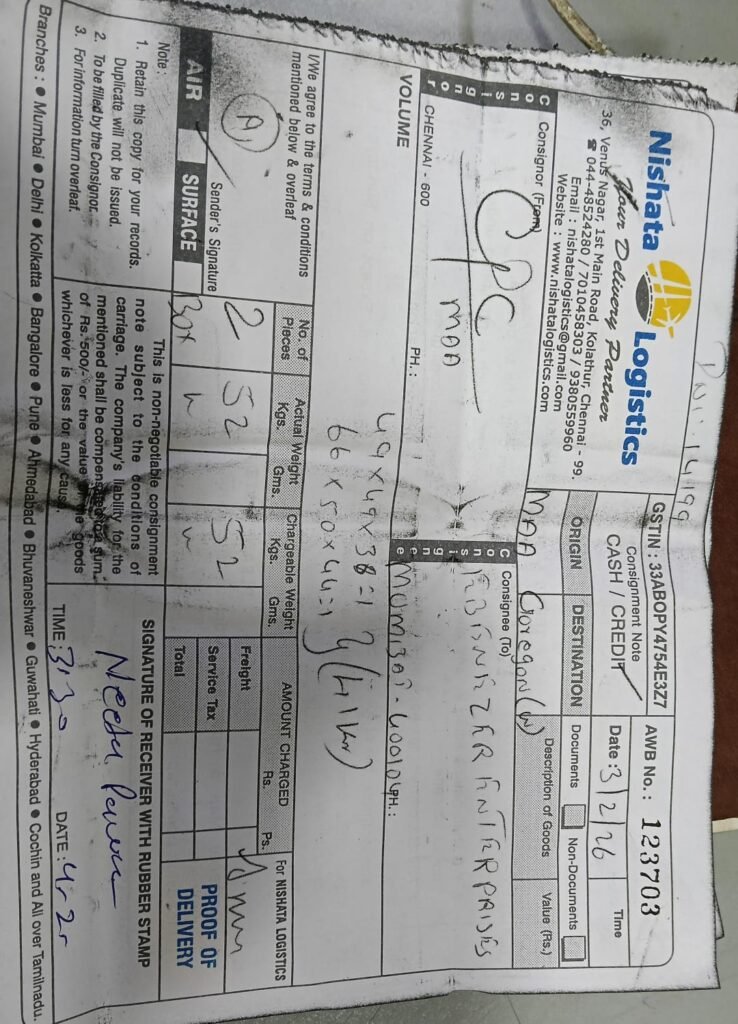 PNI: 14199
Nishata Logistics
Hour Delivery Partner
36, Venus Nagar, 1st Main Road, Kolathur, Chennai - 99.
☎ 044-48524280 / 7010458303 / 9380559960
Email : nishatalogistics@gmail.com
Website : www.nishatalogistics.com
GSTIN : 33ABOPY4754E3Z7
Consignment Note
CASH / CREDIT
AWB No.: 123703
Date : 3/2/26
Time
ORIGIN
DESTINATION
MAA
Goregon (W)
Documents
Non-Documents
Description of Goods
Value (Rs.)
Consignor
Consignor (From)
CPC
MAA
CHENNAI - 600
PH.:
Consignee
Consignee (To)
ENTERPRISES
MUMBAI - 400104
PH.:
VOLUME
49 x 49 x 38 = 1
66 x 50 x 44 = 1
I/We agree to the terms & conditions
mentioned below & overleaf
Sender's Signature
AIR
SURFACE
No. of Pieces
Actual Weight
Kgs. Gms.
Chargeable Weight
Kgs. Gms.
AMOUNT CHARGED
Rs. Ps.
For NISHATA LOGISTICS
2
Box
52
52
Freight
Service Tax
Total
PROOF OF
DELIVERY
Note :
1. Retain this copy for your records.
Duplicate will not be issued.
2. To be filled by the Consignor.
3. For information turn overleaf.
This is non-negotiable consignment
note subject to the conditions of
carriage. The company's liability for the
mentioned shall be compensated to a sum
of Rs. 500/- or the value of the goods
whichever is less for any cause
SIGNATURE OF RECEIVER WITH RUBBER STAMP
TIME: 3:30
DATE:
Branches : ● Mumbai ● Delhi ● Kolkatta ● Bangalore ● Pune ● Ahmedabad ● Bhuvaneshwar ● Guwahati ● Hyderabad ● Cochin and All over Tamilnadu.